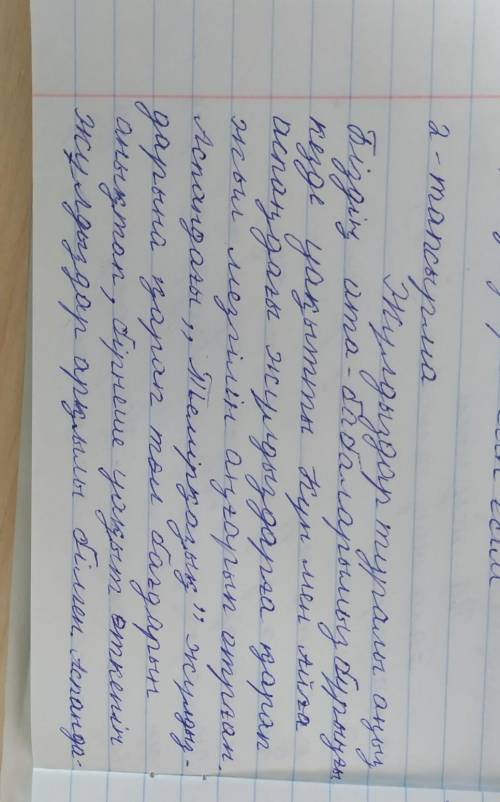 2-тапсырма
Жұлдыздар туралы аңыз
Біздің ата-бабаларымыз бұрынғы
кезде уақытты Күн мен Айға
аспандағы жұлдыздарға қарап
жыл мезгілін аңғарып отырған.
Аспандағы ,,Темірқазық" жұлдыз-
дарына қарап бағдарын
анықтап, бірнеше уақыт өткенін
жұлдыздар арқылы білген. Аспанда-